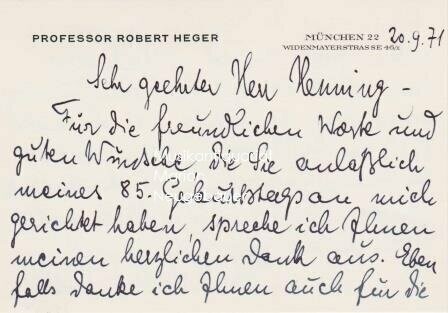 PROFESSOR ROBERT HEGER
MÜNCHEN 22 20.9.71
WIDENMAYERSTRASSE 46/I
Sehr geehrter Herr Henning –
Für die freundlichen Worte und
guten Wünsche, die Sie anläßlich
meines 85. Geburtstages an mich
gerichtet haben, spreche ich Ihnen
meinen herzlichen Dank aus. Eben
falls danke ich Ihnen auch für die
Musikantiquariat